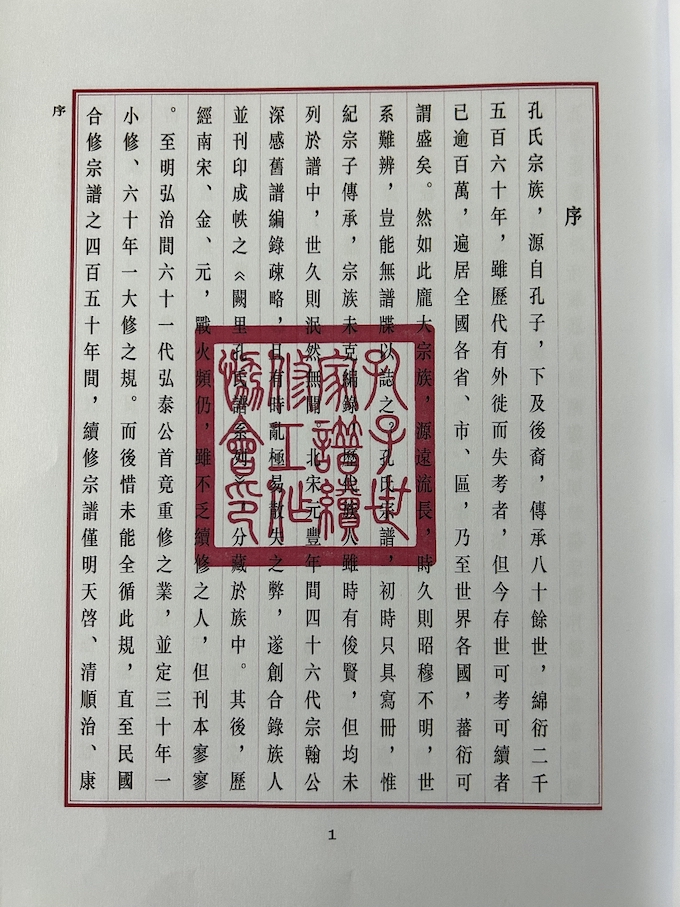 序
孔氏宗族，源自孔子，下及後裔，傳承八十餘世，綿衍二千
五百六十年，雖歷代有外徙而失考者，但今存世可考可續者
已逾百萬，遍居全國各省、市、區，乃至世界各國，蕃衍可
謂盛矣。然如此龐大宗族，源遠流長，時久則昭穆不明，世
系難辨，豈能無譜牒以誌之。孔氏宗譜，初時只具寫冊，惟
紀宗子傳承，宗族未克編錄。歷代族人雖時有俊賢，但均未
列於譜中，世久則泯然無聞。北宋元豐年間四十六代宗翰公
深感舊譜編錄疎略，且有時亂極易散失之弊，遂創合錄族人
並刊印成帙之《闕里孔氏譜系列》，分藏於族中。其後，歷
經南宋、金、元，戰火頻仍，雖不乏續修之人，但刊本寥寥
。至明弘治間六十一代弘泰公首竟重修之業，並定三十年一
小修、六十年一大修之規。而後惜未能全循此規，直至民國
合修宗譜之四百五十年間，續修宗譜僅明天啓、清順治、康
序
孔子世
家譜續
修工作
協會印
1